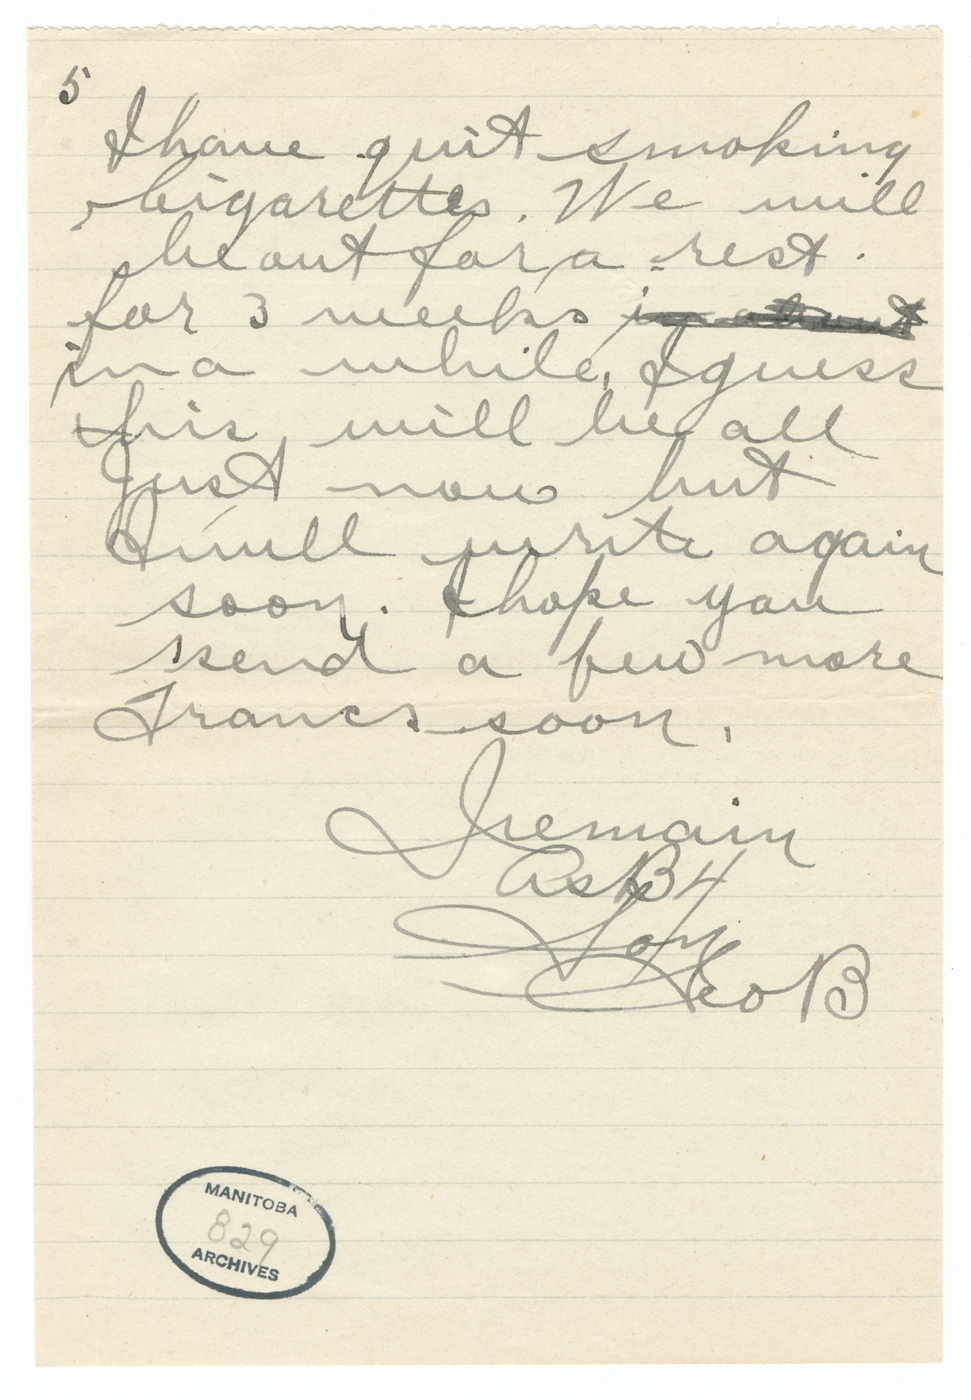 5
I have quit smoking
cigarettes. We will
be out for a rest.
for 3 weeks in about
in a while, I guess
this will be all
just now but
I will write again
soon. I hope you
send a few more
Francs soon.
I remain
As B4
Son
Geo B
MANITOBA
829
ARCHIVES